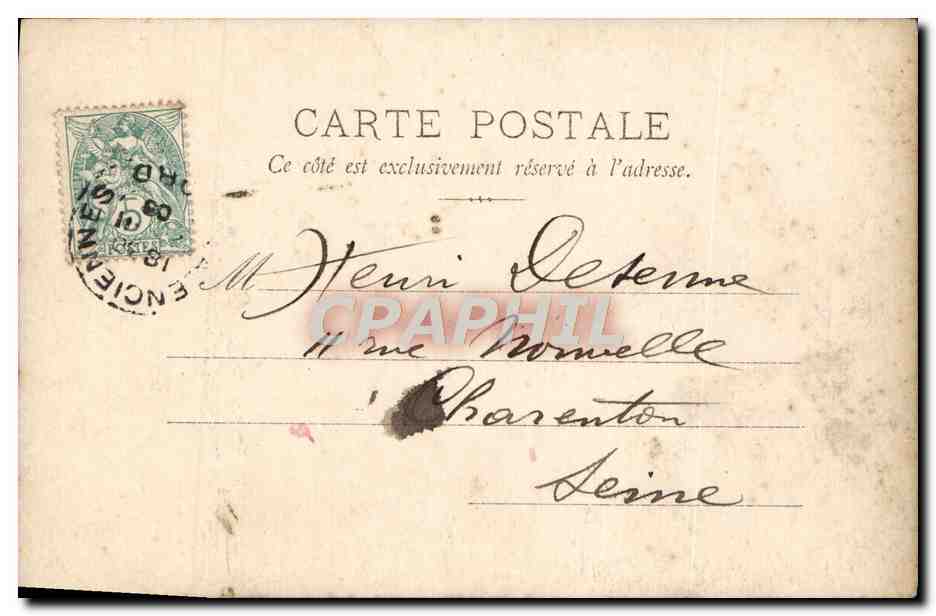 CARTE POSTALE
Ce côté est exclusivement réservé à l'adresse.
M Henri Desenne
11 rue Nouvelle
Charenton
Seine
CPAPHIL
5
POSTES
ENCIENNES
ORD
18
01
03